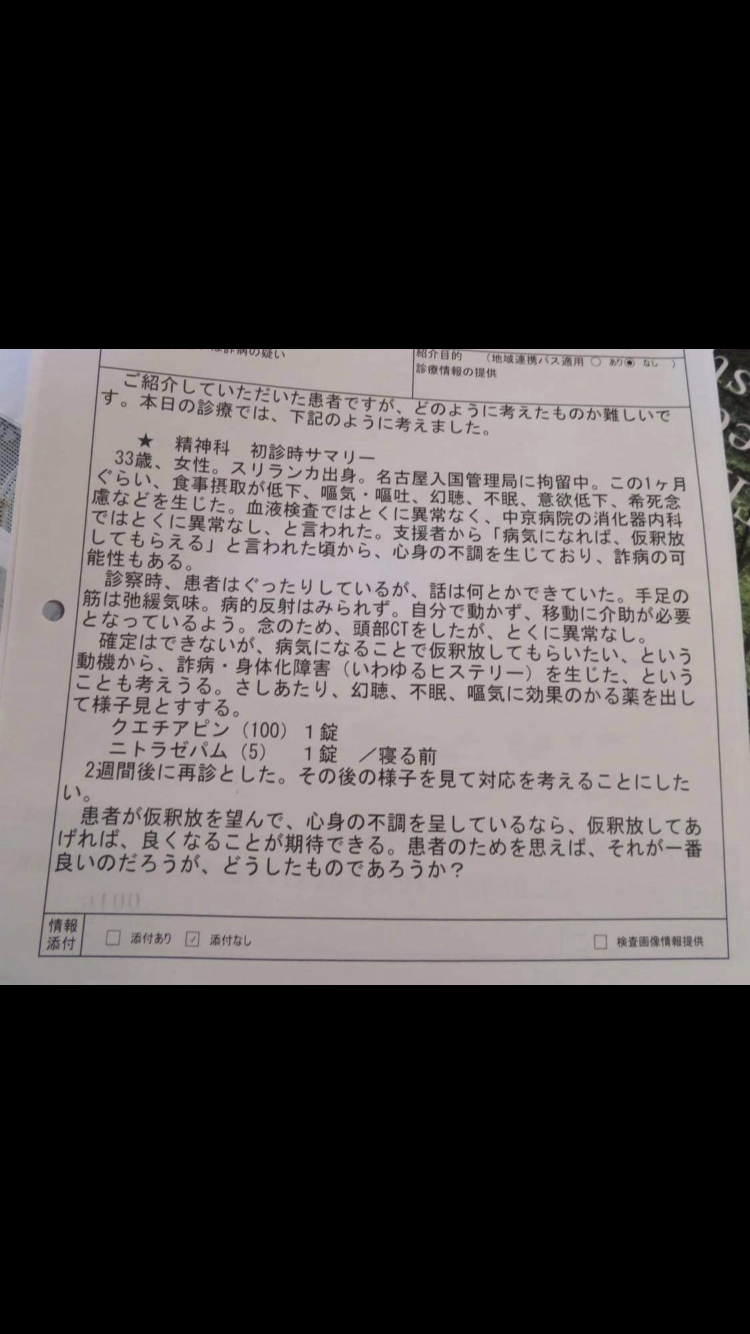 詐病の疑い
紹介目的 （地域連携パス適用 ○ あり ◉ なし ）
診療情報の提供
ご紹介していただいた患者ですが、どのように考えたものか難しいで
す。本日の診療では、下記のように考えました。
★ 精神科 初診時サマリー
33歳、女性。スリランカ出身。名古屋入国管理局に拘留中。この1ヶ月
ぐらい、食事摂取が低下、嘔気・嘔吐、幻聴、不眠、意欲低下、希死念
慮などを生じた。血液検査ではとくに異常なく、中京病院の消化器内科
ではとくに異常なし、と言われた。支援者から「病気になれば、仮釈放
してもらえる」と言われた頃から、心身の不調を生じており、詐病の可
能性もある。
診察時、患者はぐったりしているが、話は何とかできていた。手足の
筋は弛緩気味。病的反射はみられず。自分で動かず、移動に介助が必要
となっているよう。念のため、頭部CTをしたが、とくに異常なし。
確定はできないが、病気になることで仮釈放してもらいたい、という
動機から、詐病・身体化障害（いわゆるヒステリー）を生じた、という
ことも考えうる。さしあたり、幻聴、不眠、嘔気に効果のかる薬を出し
て様子見とすする。
クエチアピン（100） 1錠
ニトラゼパム（5） 1錠 ／寝る前
2週間後に再診とした。その後の様子を見て対応を考えることにした
い。
患者が仮釈放を望んで、心身の不調を呈しているなら、仮釈放してあ
げれば、良くなることが期待できる。患者のためを思えば、それが一番
良いのだろうが、どうしたものであろうか？
情報
添付
□ 添付あり ☑ 添付なし □ 検査画像情報提供